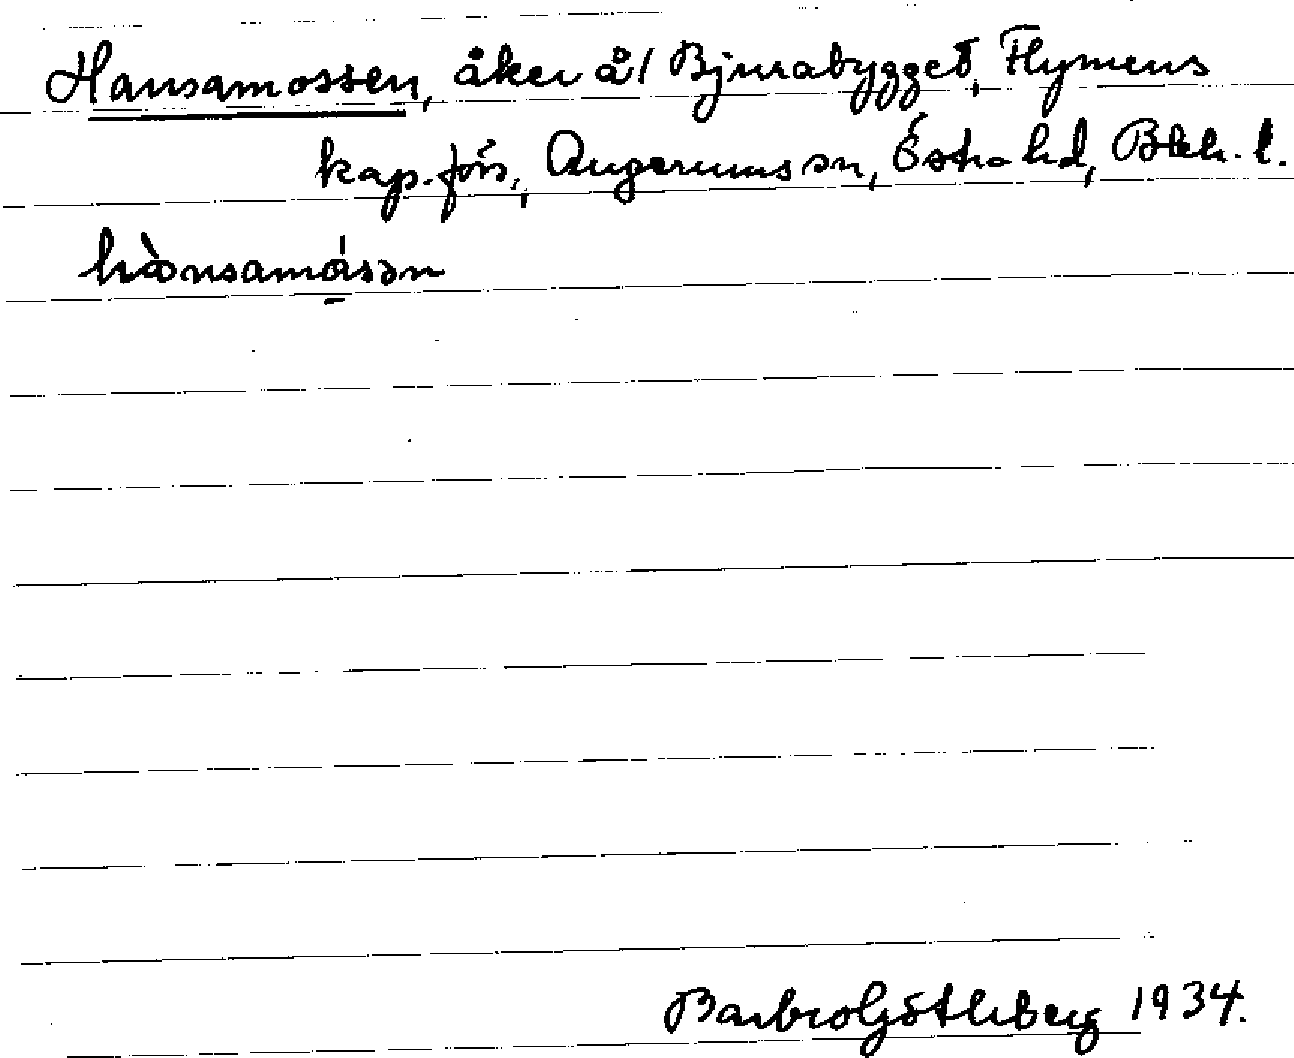 Hansamossen, åker å 1 Bjurabygget, Flymens
kap.förs., Augerums sn, Östra hd, Blek. l.
hànsamåsən
Barbro Götleberg 1934.